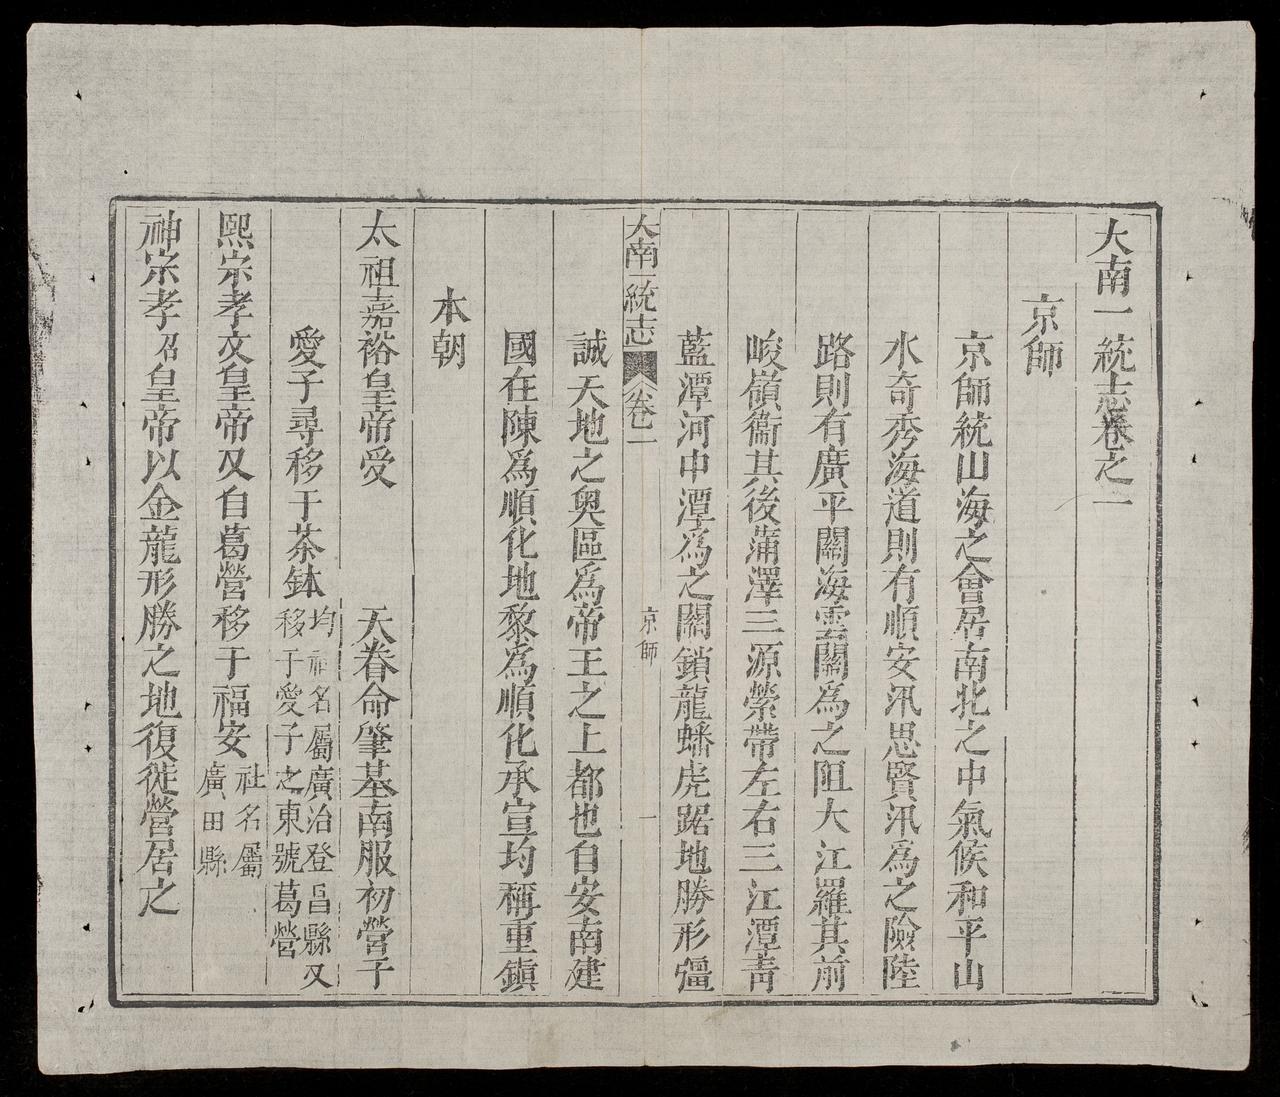 大南一統志卷之一
京師
京師統山海之會居南北之中氣候和平山
水奇秀海道則有順安汛思賢汛為之險陸
路則有廣平關海雲關為之阻大江羅其前
峻嶺衞其後蒲澤三源縈帶左右三江潭靑
藍潭河中潭為之關鎖龍蟠虎踞地勝形彊
大南一統志 卷一 京師 一
誠天地之奥區為帝王之上都也自安南建
國在陳為順化地黎為順化承宣均稱重鎮
本朝
太祖嘉裕皇帝受 天眷命肇基南服初營于
愛子尋移于茶鉢均社名屬廣治登昌縣又移于愛子之東號葛營
熙宗孝文皇帝又自葛營移于福安社名屬廣田縣
神宗孝昭皇帝以金龍形勝之地復徙營居之